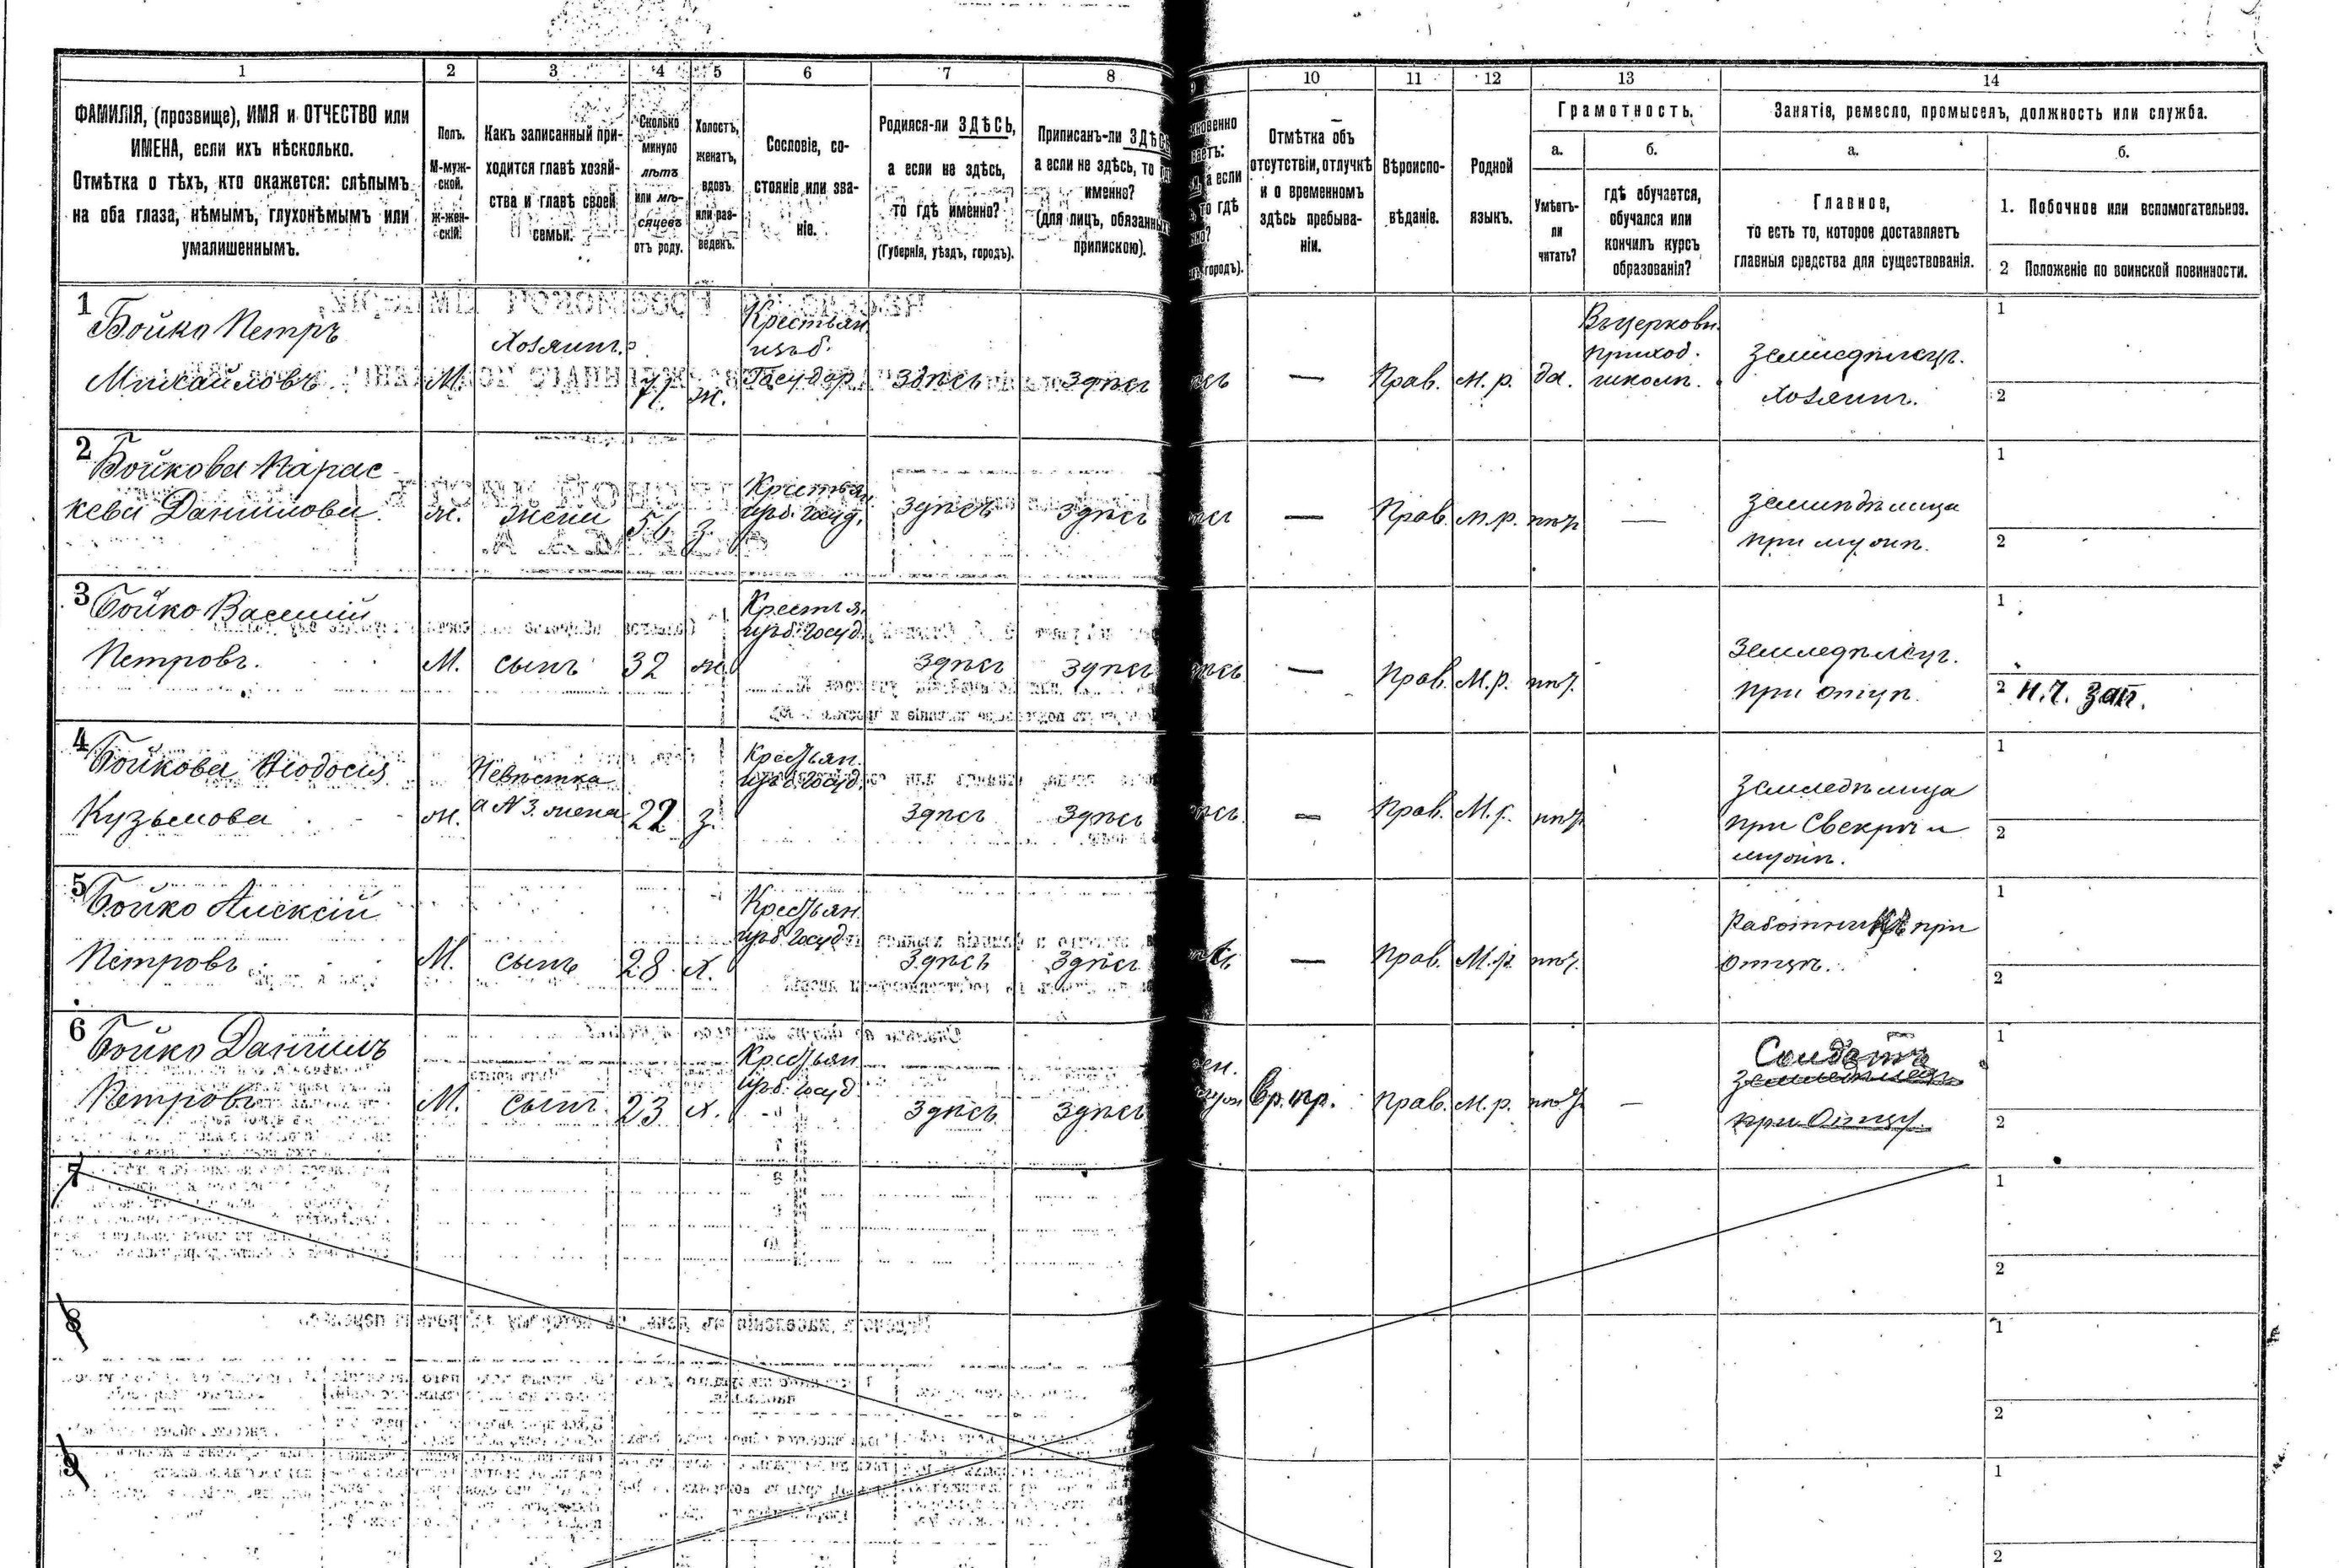 1 2 3 4 5 6 7 8 10 11 12 13 14
ФАМИЛІЯ, (прозвище), ИМЯ и ОТЧЕСТВО или
ИМЕНА, если ихъ нѣсколько.
Отмѣтка о тѣхъ, кто окажется: слѣпымъ
на оба глаза, нѣмымъ, глухонѣмымъ или
умалишеннымъ.
Полъ.
М-муж-
ской.
Ж-жен-
скій.
Какъ записанный при-
ходится главѣ хозяй-
ства и главѣ своей
семьи.
Сколько
минуло
лѣтъ
или мѣ-
сяцевъ
отъ роду.
Холостъ,
женатъ,
вдовъ
или раз-
веденъ.
Сословіе, со-
стояніе или зва-
ніе.
Родился-ли ЗДѢСЬ,
а если не здѣсь,
то гдѣ именно?
(Губернія, уѣздъ, городъ).
Приписанъ-ли
а если не здѣсь, то
именно?
(для лицъ, обязанныхъ
припискою).
а если
то гдѣ
городъ).
Отмѣтка объ
отсутствіи, отлучкѣ
и о временномъ
здѣсь пребыва-
ніи.
Вѣроиспо-
вѣданіе.
Родной
языкъ.
Грамотность.
а.
Умѣетъ-
ли
читать?
б.
гдѣ обучается,
обучался или
кончилъ курсъ
образованія?
Занятія, ремесло, промыселъ, должность или служба.
а.
Главное,
то есть то, которое доставляетъ
главныя средства для существованія.
б.
1. Побочное или вспомогательное.
2 Положеніе по воинской повинности.
1
Бойко Петръ
Михайловъ
М.
Хозяинъ.
71
ж.
Крестьян.
изъ б.
Государ.
здѣсь
здѣсь
—
Прав.
М. р.
да.
Въ церковн.
приход.
школѣ.
Земледѣлецъ.
Хозяинъ.
1
2
2
Бойкова Парас-
кева Данилова
ж.
жена
з.
Крестьян.
изъ б. госуд.
здѣсь
здѣсь
—
Прав.
М. р.
нѣт
—
Земледѣлица
при мужѣ.
1
2
3
Бойко Василій
Петровъ.
М.
сынъ
32
ж.
Крестья.
изъ б. госуд.
здѣсь
здѣсь
—
Прав.
М. р.
нѣт.
Земледѣлецъ.
при отцѣ.
1
2 Н. Ч. Зап.
4
Бойкова Ѳеодосія
Кузьмова
ж.
Невѣстка
а № 3. жена
22
з.
Крестьян.
изъ б. госуд.
здѣсь
здѣсь
—
Прав.
М. р.
нѣт
Земледѣлица
при Свекрѣ и
мужѣ.
1
2
5
Бойко Алексѣй
Петровъ
М.
сынъ
28
х.
Крестьян.
изъ б. госуд.
здѣсь
здѣсь
—
Прав.
М. р.
нѣт.
Работникъ при
отцѣ.
1
2
6
Бойко Даніилъ
Петровъ
М.
сынъ.
23
х.
Крестьян.
изъ б. госуд.
здѣсь
здѣсь
Вр. пр.
Прав.
М. р.
нѣт
—
Солдатъ
Земледѣлецъ
при отцу.
1
2
7
1
2
8
1
2
9
1
2